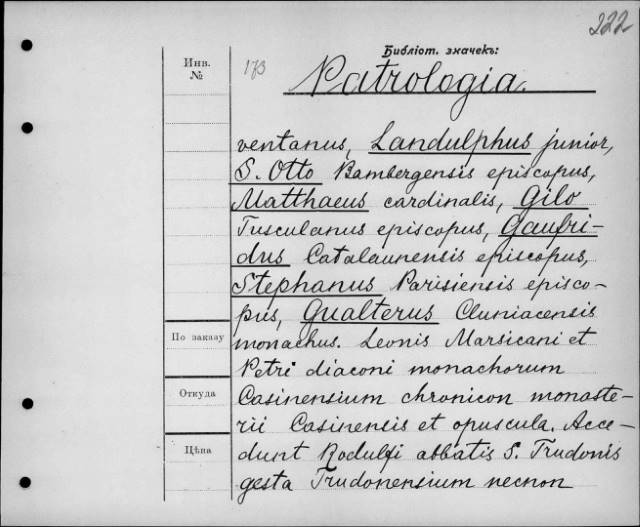 222
Библіот. значекъ:
Инв. №
173
Patrologia.
ventanus, Landulphus junior,
S. Otto Bambergensis episcopus,
Matthaeus cardinalis, Gilo
Tusculanus episcopus, Gaufri-
dus Catalaunensis episcopus,
Stephanus Parisiensis episco-
pus, Gualterus Cluniacensis
monachus. Leonis Marsicani et
Petri diaconi monachorum
Casinensium chronicon monaste-
rii Casinensis et opuscula. Acce-
dunt Rodulfi abbatis S. Trudonis
gesta Trudonensium necnon
По заказу
Откуда
Цѣна